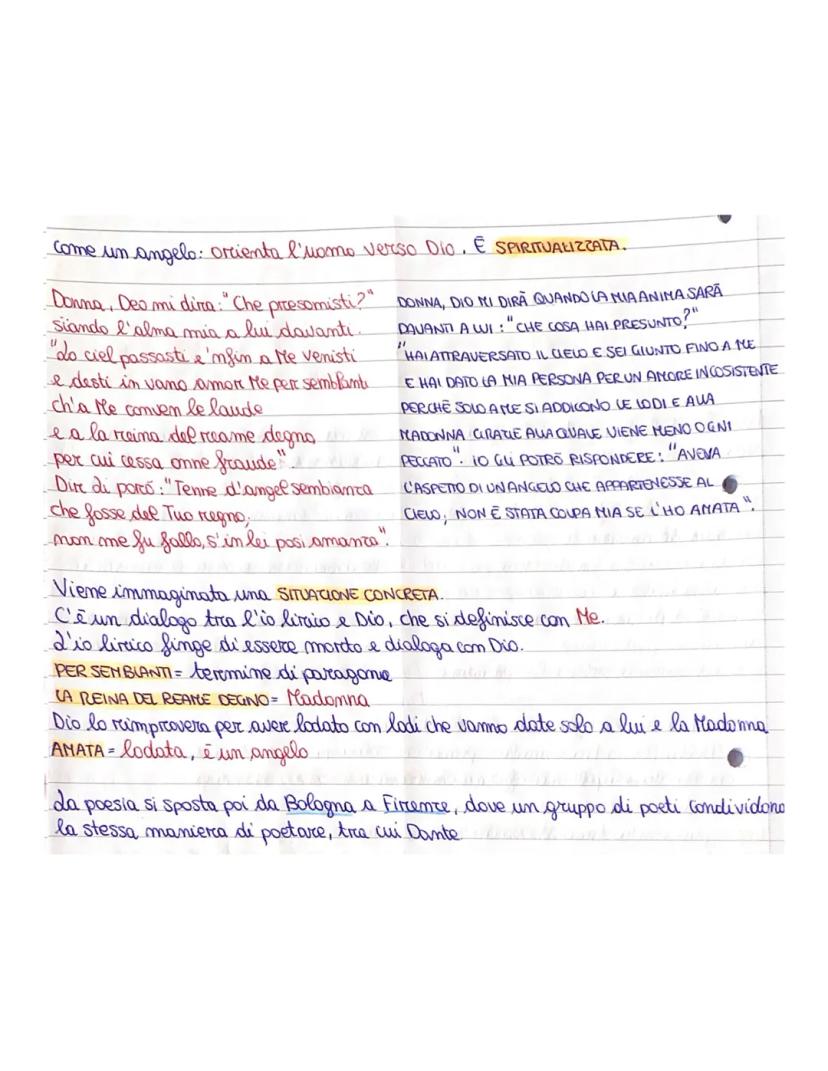 come un angelo: orienta l'uomo verso Dio. È SPIRITUALIZZATA.
Donna, Deo mi dira: "Che presomisti?"
siando l'alma mia a lui davanti.
"Lo ciel passasti e 'nfin a Me venisti
e desti in vano amor Me per semblanti
ch'a Me conven le laude
e a la reina del reame degno,
per cui cessa onne fraude".
Dir Li porò: "Tenne d'angel sembianza
che fosse del Tuo regno;
non me fu fallo, s'in lei posi amanza".
DONNA, DIO MI DIRÀ QUANDO LA MIA ANIMA SARÀ
DAVANTI A LUI: "CHE COSA HAI PRESUNTO?"
"HAI ATTRAVERSATO IL CIELO E SEI GIUNTO FINO A ME
E HAI DATO LA MIA PERSONA PER UN AMORE INCOSISTENTE
PERCHÈ SOLO A ME SI ADDICONO LE LODI E ALLA
MADONNA GRAZIE ALLA QUALE VIENE MENO OGNI
PECCATO". IO GLI POTRÒ RISPONDERE: "AVEVA
L'ASPETTO DI UN ANGELO CHE APPARTENESSE AL
CIELO; NON È STATA COLPA MIA SE L'HO AMATA".
Viene immaginata una SITUAZIONE CONCRETA.
C'è un dialogo tra l'io lirico e Dio, che si definisce con Me.
L'io lirico finge di essere morto e dialoga con Dio.
PER SEMBLANTI = termine di paragone
LA REINA DEL REAME DEGNO = Madonna
Dio lo rimprovera per aver lodato con lodi che vanno date solo a lui e la Madonna
AMATA = lodata, è un angelo
La poesia si sposta poi da Bologna a Firenze, dove un gruppo di poeti condividono
la stessa maniera di poetare, tra cui Dante